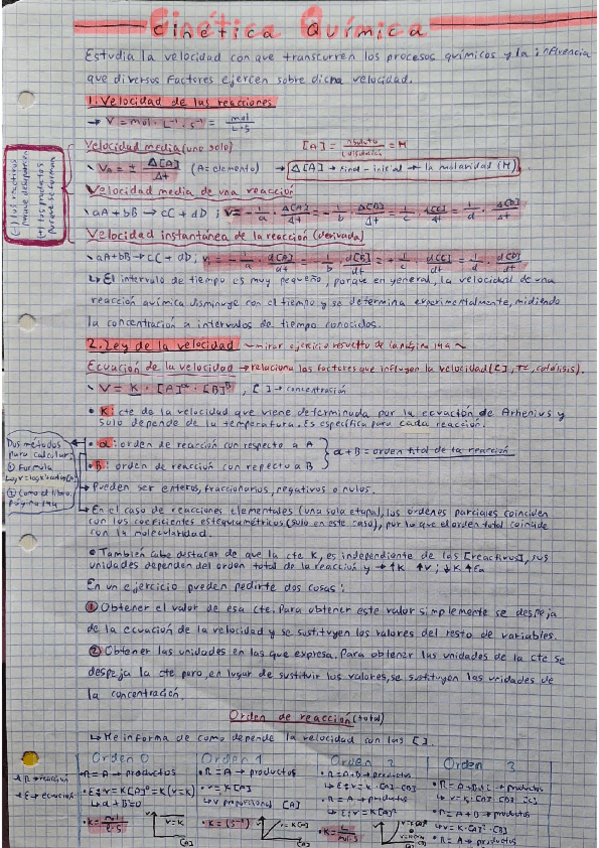 Cinética Química
Estudia la velocidad con que transcurren los procesos químicos y la influencia
que diversos factores ejercen sobre dicha velocidad.
1. Velocidad de las reacciones
→ V = mol · L⁻¹ · s⁻¹ = mol / L·s
Velocidad media (uno solo) [A] = = M
Va = ± Δ[A] / Δt (A = elemento) → Δ[A] → final - inicial → la molaridad (M)
(-) los reactivos porque desaparecen
(+) los productos porque se forman
Velocidad media de una reacción
aA + bB → cC + dD ; V = - 1/a · Δ[A]/Δt = - 1/b · Δ[B]/Δt = 1/c · Δ[C]/Δt = 1/d · Δ[D]/Δt
Velocidad instantánea de la reacción (derivada)
aA + bB → cC + dD, V = - 1/a · d[A]/dt = - 1/b · d[B]/dt = + 1/c · d[C]/dt = 1/d · d[D]/dt
↳ El intervalo de tiempo es muy pequeño, porque en general, la velocidad de una
reacción química disminuye con el tiempo y se determina experimentalmente, midiendo
la concentración a intervalos de tiempo conocidos.
2. Ley de la velocidad ~ mirar ejercicio resuelto de la página 144 ~
Ecuación de la velocidad → relaciona los factores que influyen la velocidad ([ ], Tª, catálisis).
V = K · [A]^α · [B]^β , [ ] → concentración
• K: cte de la velocidad que viene determinada por la ecuación de Arhenius y
solo depende de la temperatura. Es específica para cada reacción.
Dos métodos
para calcular:
① Formula
② Como el libro,
Página 144
• α: orden de reacción con respecto a A
• β: orden de reacción con repecto a B
α + β = orden total de la reacción
→ Pueden ser enteros, fraccionarios, negativos o nulos.
→ En el caso de reacciones elementales (una sola etapa), los órdenes parciales coinciden
con los coeficientes estequiométricos (solo en este caso), por lo que el orden total coincide
con la molecularidad.
• También cabe destacar de que la cte K, es independiente de las [reactivos], sus
unidades dependen del orden total de la reacción y → ↑K ↑v ; ↓K ↑Ea
En un ejercicio pueden pedirte dos cosas:
① Obtener el valor de esa cte. Para obtener este valor simplemente se despeja
de la ecuación de la velocidad y se sustituyen los valores del resto de variables.
② Obtener las unidades en las que expresa. Para obtener las unidades de la cte se
despeja la cte pero, en lugar de sustituir los valores, se sustituyen las unidades de
la concentración.
Orden de reacción (total)
↳ Me informa de como depende la velocidad con las [ ].
Orden 0 Orden 1 Orden 2 Orden 3
* R → reacción
* E → ecuación
• R = A → productos
• E: v = K[A]⁰ = K (v = K)
↳ α + β = 0
• K = mol / L·s
v v = K [A]
• R = A → productos
• v = K[A]
↳ v proporcional [A]
• K = (s⁻¹)
v v = K[A] [A]
• R = A + B → productos
↳ E: v = K · [A] · [B]
• R = A → productos
↳ E: v = K[A]²
• K = L / mol·s
[A]
• R = A + B + C → productos
↳ v = K · [A] · [B] · [C]
• R = A + B → productos
↳ v = K · [A]² · [B]
• R = A → productos